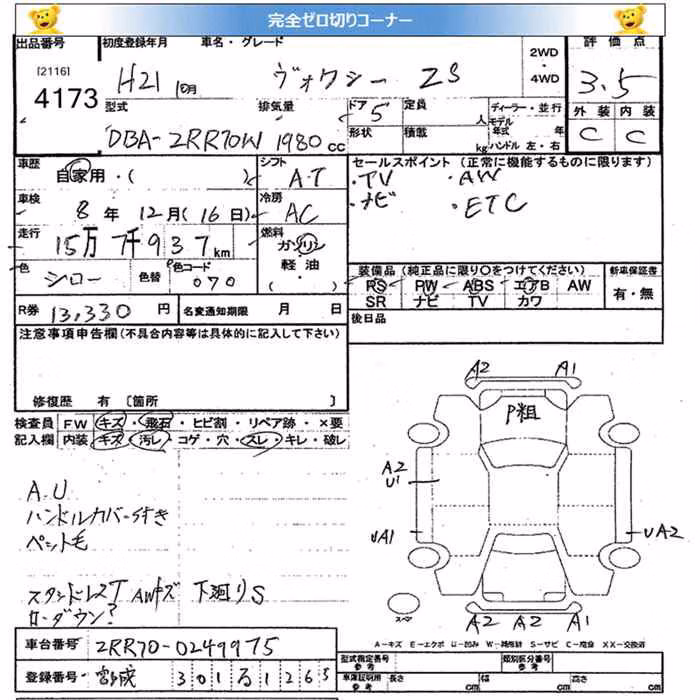 完全ゼロ切りコーナー
出品番号 初度登録年月 車名・グレード 2WD ・ 4WD 評価点
[2116] 4173 H21 10月 ヴォクシー ZS 3.5
型式 排気量 ドア 5 定員 人 ディーラー・並行 外装 内装
形状 積載 kg モデル年式 年 ハンドル 左・右
DBA-ZRR70W 1980 cc C C
車歴 自家用・( ) シフト AT セールスポイント (正常に機能するものに限ります)
・TV ・AW
車検 8年 12月(16日) 冷房 AC ・ナビ ・ETC
走行 15万7千937km 燃料 ガソリン
軽油 ( )
色 シロー 色替 色コード 070
装備品 (純正品に限り○をつけてください) 新車保証書
PS PW ABS エアB AW 有・無
SR ナビ TV カワ
R券 13,330円 名変通知期限 月 日 後日品
注意事項申告欄 (不具合内容等は具体的に記入して下さい)
修復歴 有 〔箇所 〕
検査員 FW キズ・飛石・ヒビ割・リペア跡・×要
記入欄 内装 キズ・汚レ・コゲ・穴・スレ・キレ・破レ
A2 A1
P粗
A2
U1
UA1 UA2
A.U
ハンドルカバー付き
ペット毛
スタンドレスT AWキズ 下廻りS
ローダウン?
スペア
A2 A2 A1
A-キズ E-エクボ U-凹み W-補修跡 S-サビ C-腐食 XX-交換済
車台番号 ZRR70-0249975
型式指定番号 参考 類別区分番号 参考
登録番号 301 1265
車庫証明用 参考 長さ cm 幅 cm 高さ cm